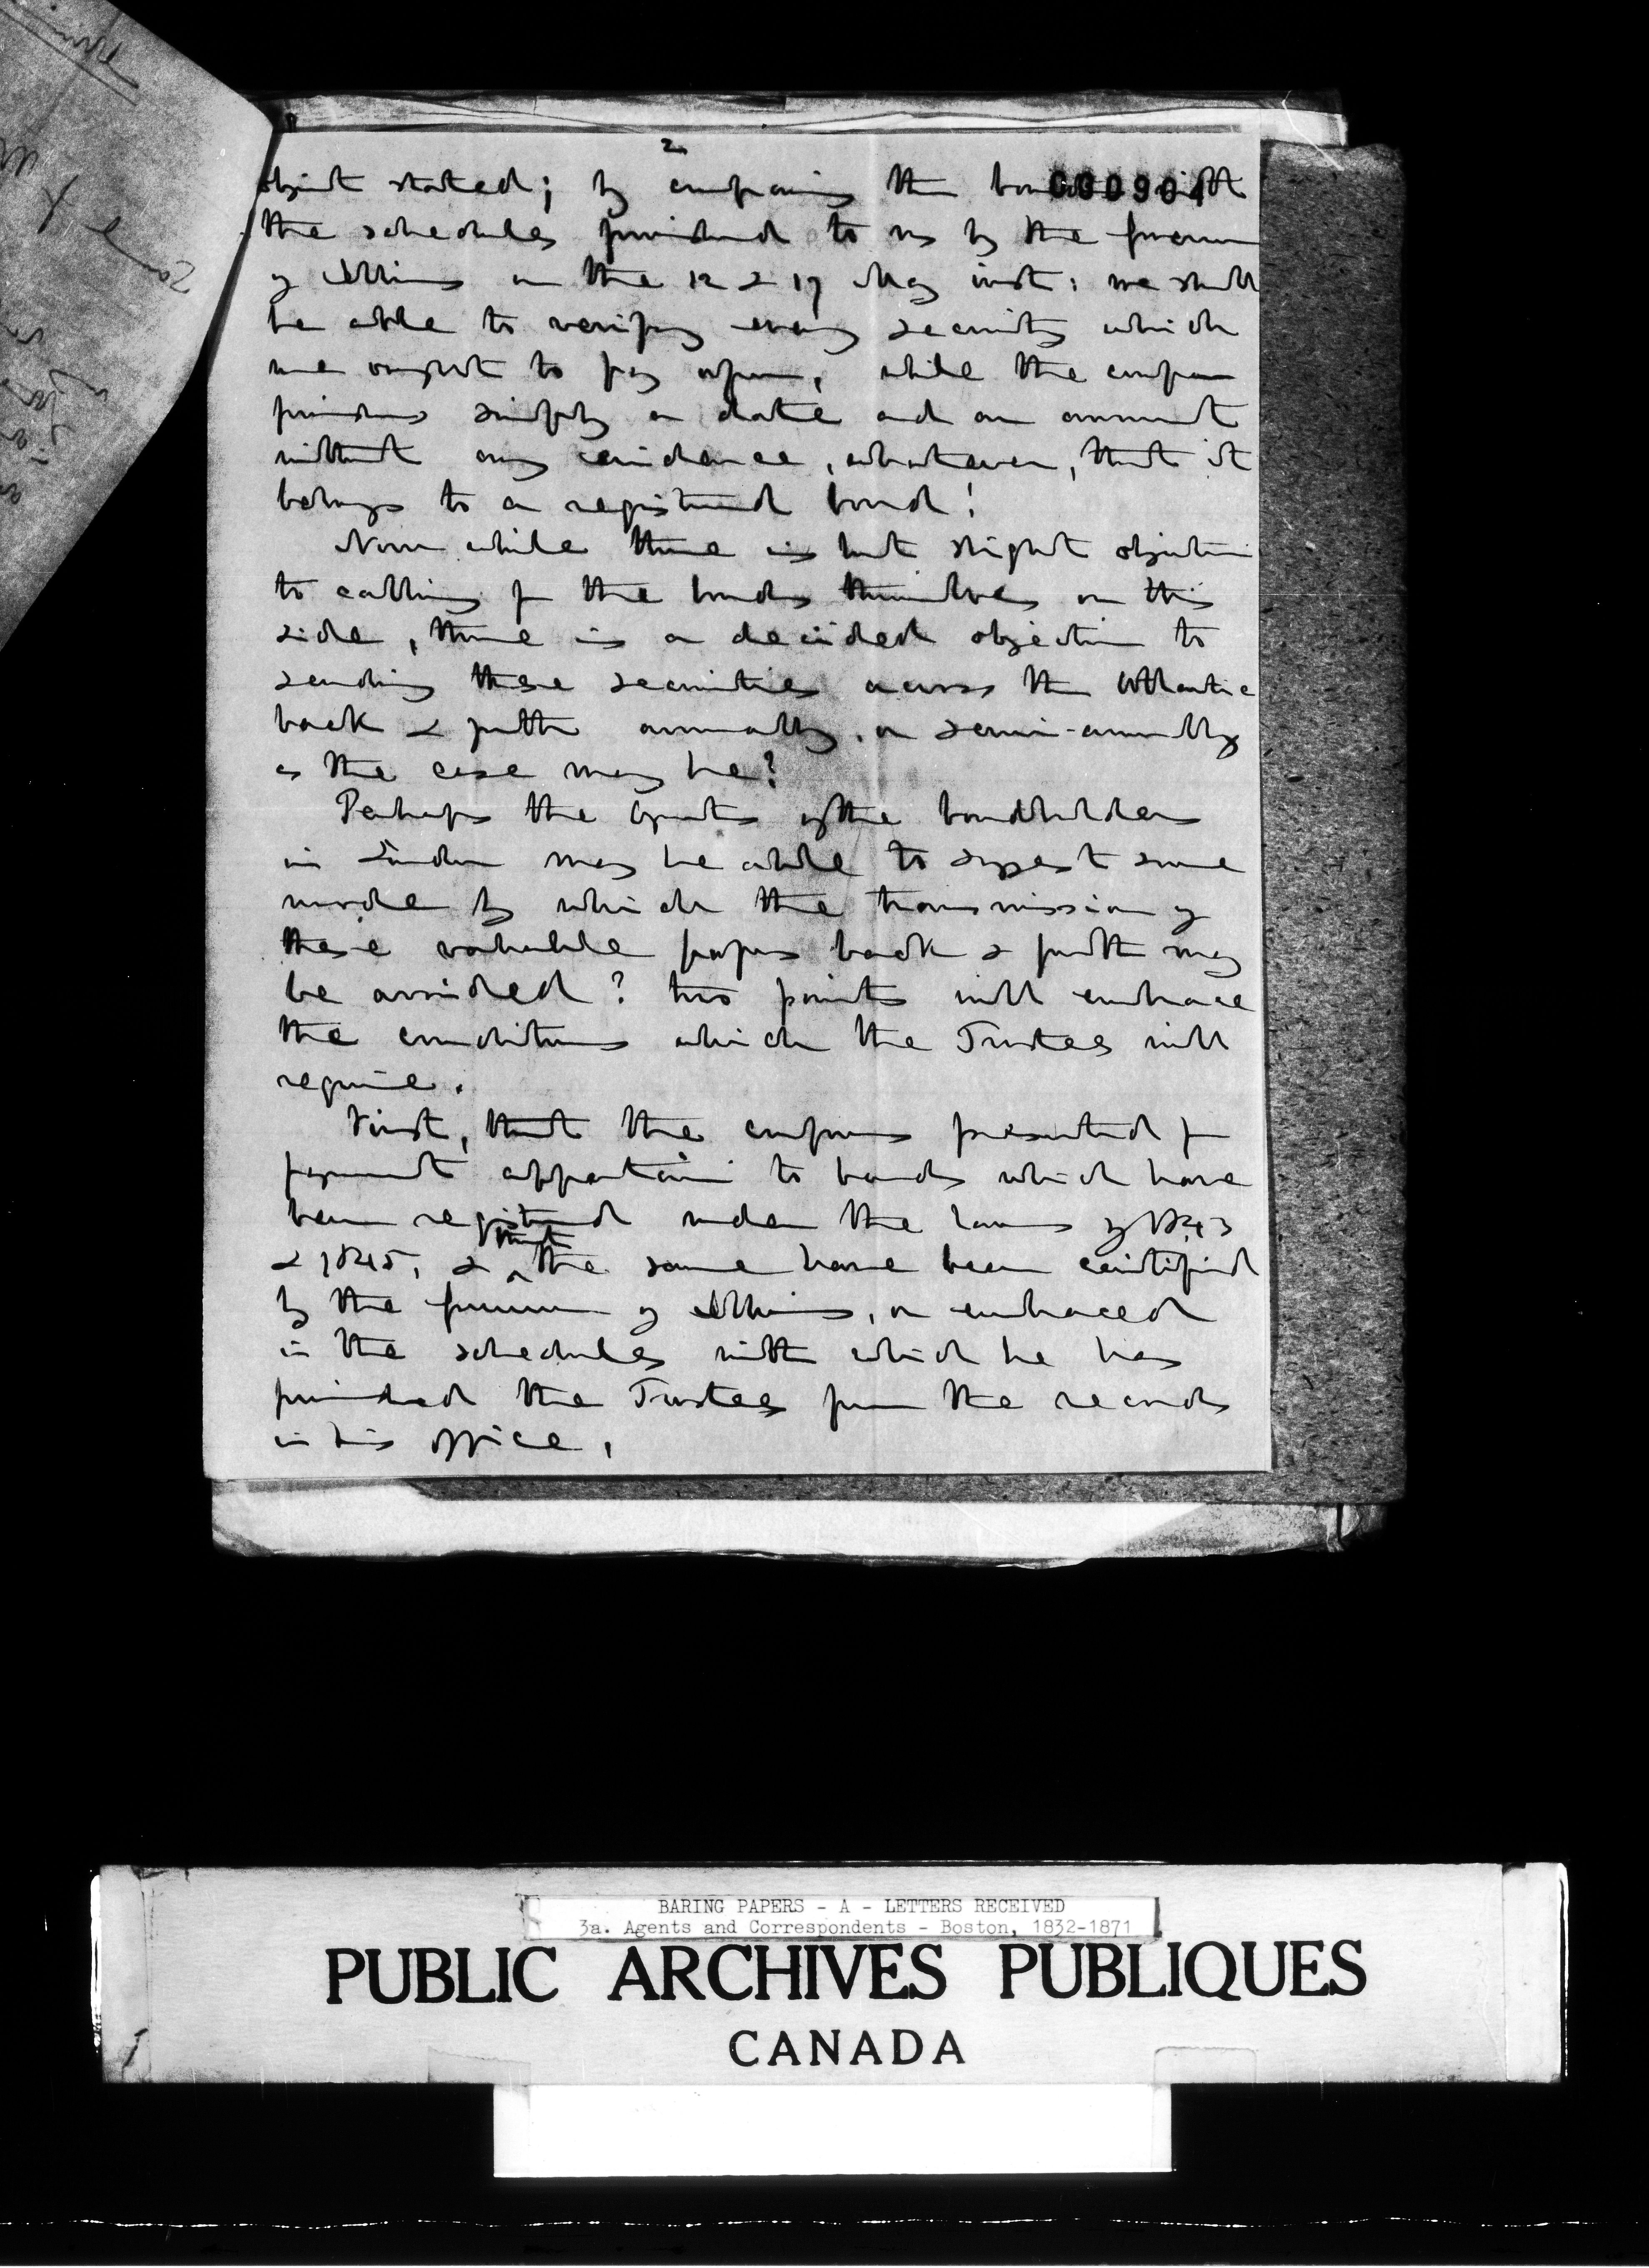 2
object stated; by comparing the bonds with
000904
the schedules furnished to us by the Governor
of Illinois on the 12 & 17 May inst: we shall
be able to verify every security which
we ought to pay upon, while the coupon
furnishes simply a date and an amount
without any evidence, whatever, that it
belongs to a registered bond!
Now while there is but slight objection
to calling for the bonds themselves on this
side, there is a decided objection to
sending these securities across the Atlantic
back & forth annually, or semi-annually
as the case may be?
Perhaps the Agents of the bondholders
in London may be able to suggest some
mode by which the transmission of
these valuable papers back & forth may
be avoided? two points will embrace
the conditions which the Trustees will
require.
First, that the coupons presented for
payment appertain to bonds which have
been registered under the laws of 1843
& 1845, & that the same have been certified
by the Governor of Illinois, or embraced
in the schedules with which he has
furnished the Trustees from the records
in his office,
BARING PAPERS - A - LETTERS RECEIVED
3a. Agents and Correspondents - Boston, 1832-1871
PUBLIC ARCHIVES PUBLIQUES
CANADA